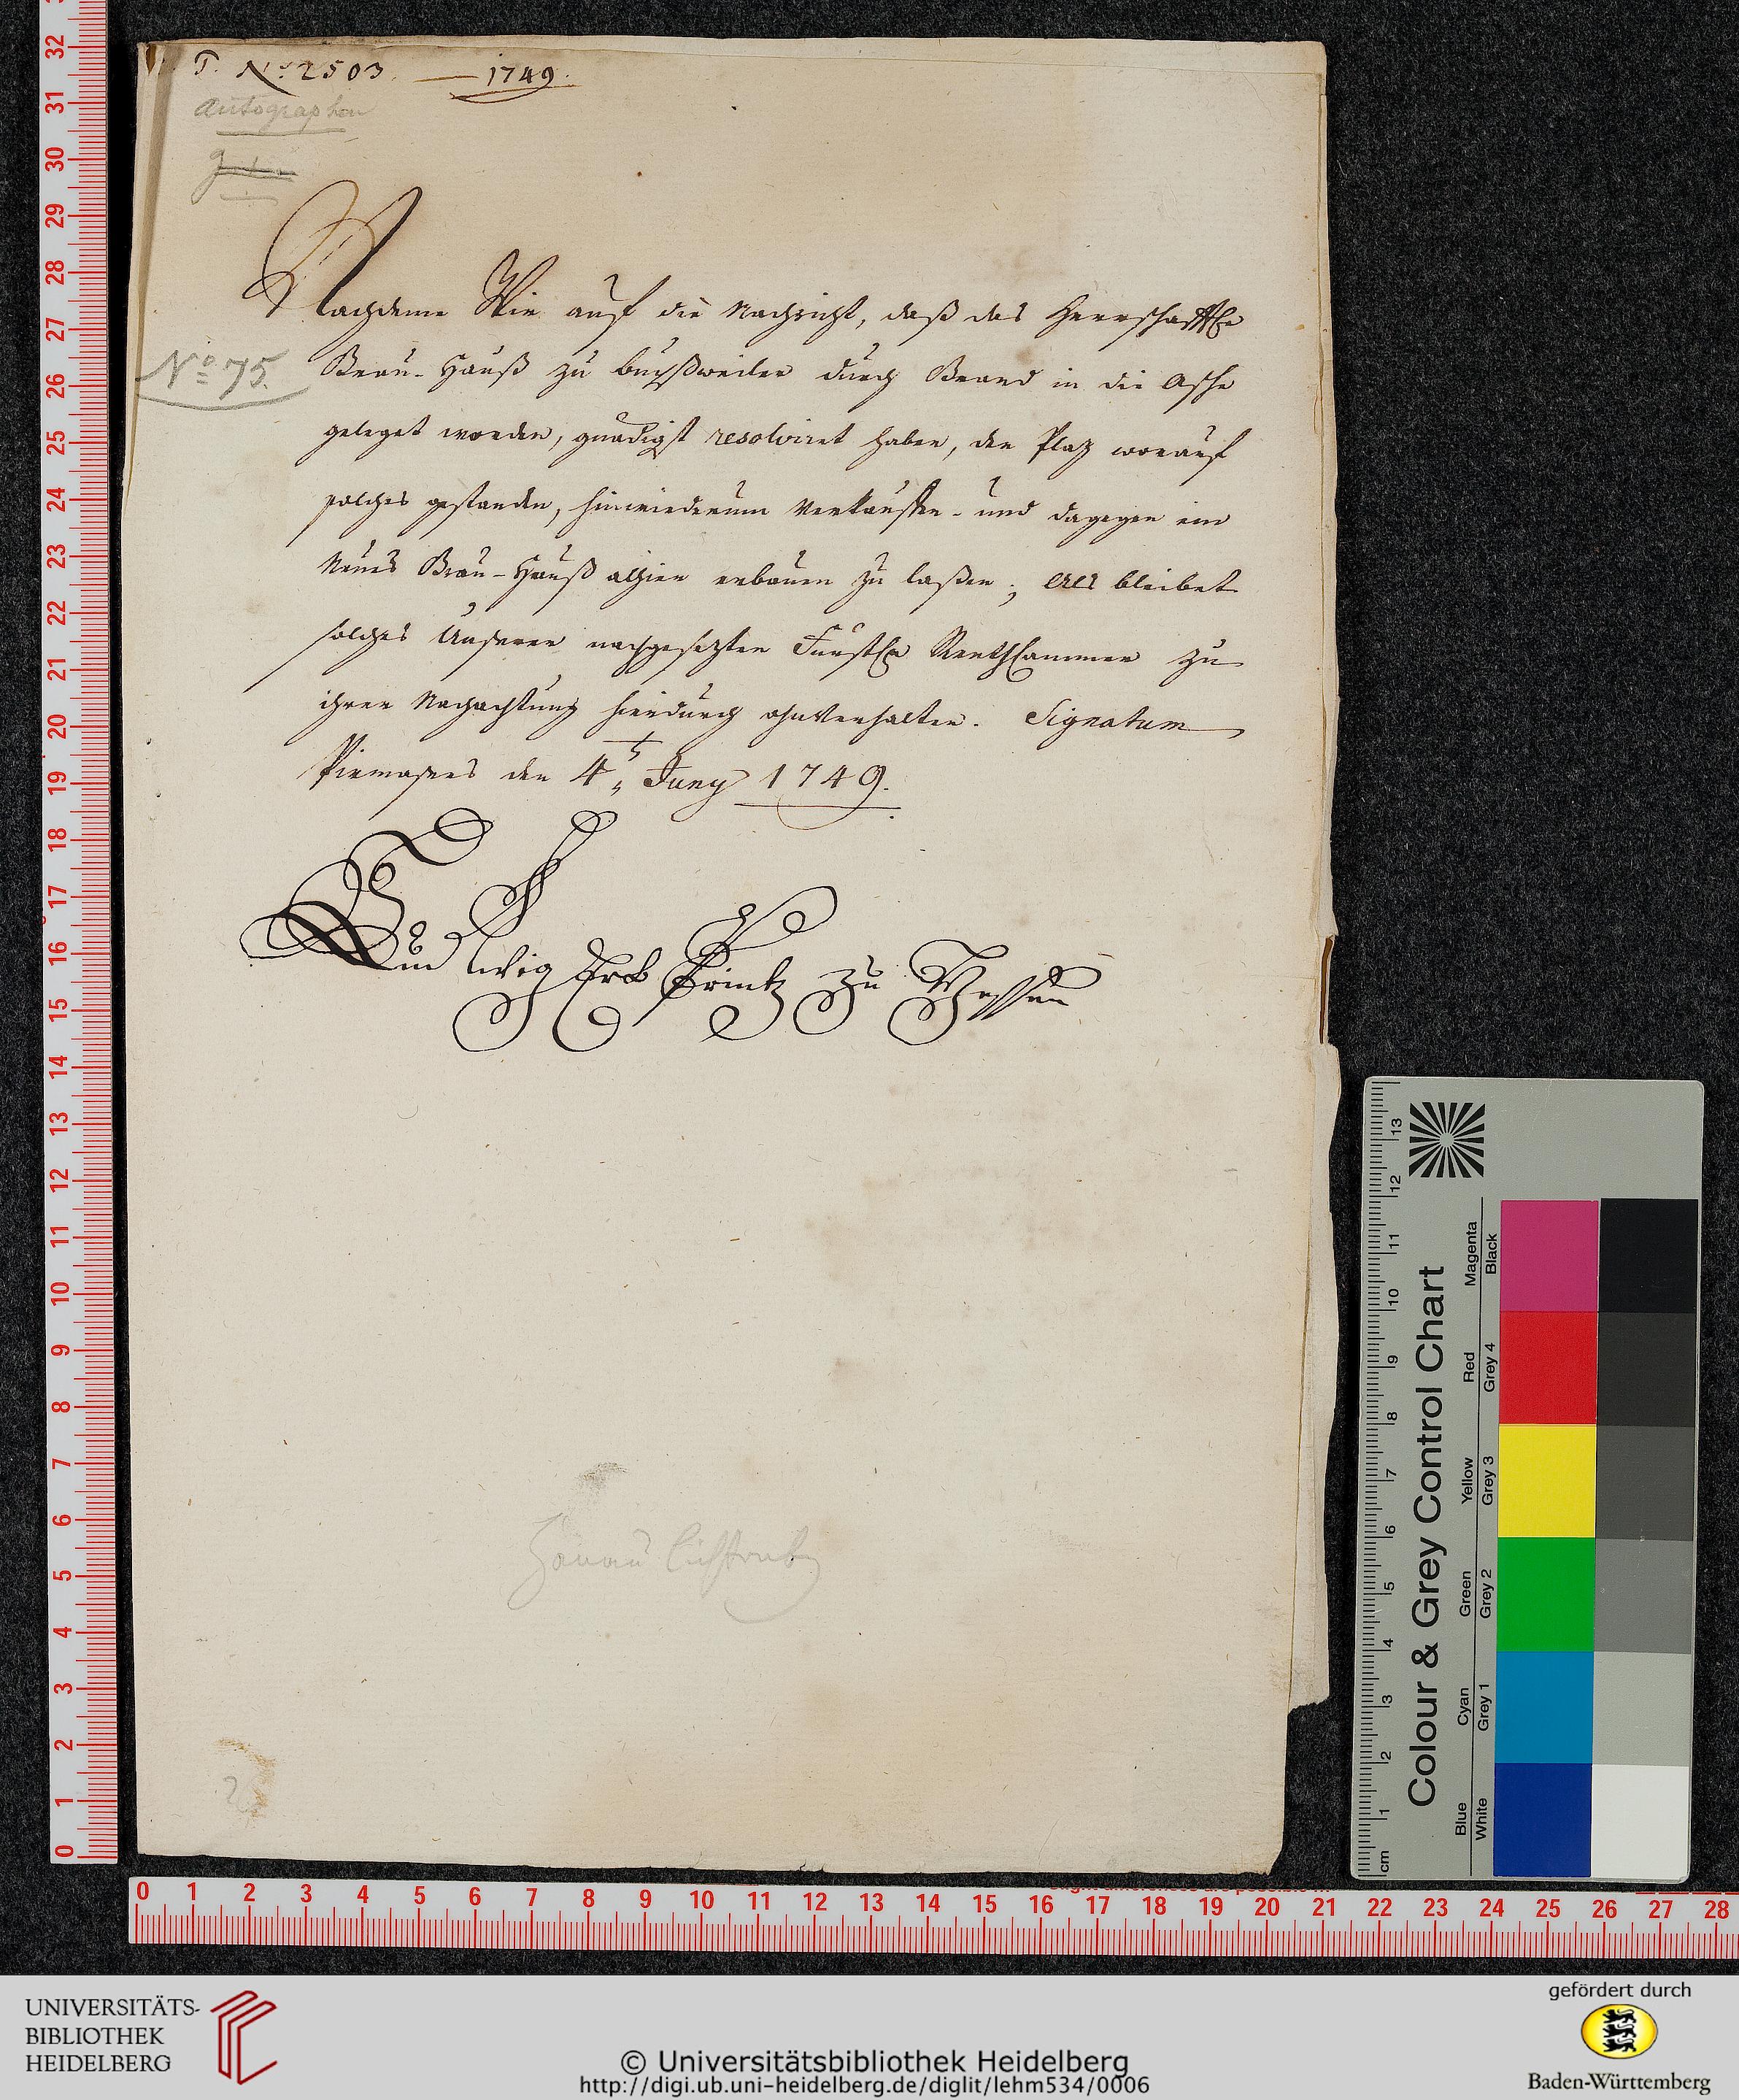 T. No. 2503. — 1749.
Autographen
No 75.
Nachdeme Wir auf die Nachricht, daß das Herrschafftl.
Brau-Hauß zu Buchßweiler durch Brand in die Asche
geleget worden, gnädigst resolviret haben, den Platz worauf
solches gestanden, hinwiederum verkauffen- und dagegen ein
Neues Brau-Hauß alhier erbauen zu laßen; Als bleibet
solches Unserer nachgesetzten Fürstl. RenthCammer zu
ihrer Nachachtung hierdurch ohnverhalten. Signatum
Pirmasens den 4t. Juny 1749.
Ludwig Erb Printz zu Hessen
Hanau Lichtenbg
2
32 31 30 29 28 27 26 25 24 23 22 21 20 19 18 17 16 15 14 13 12 11 10 9 8 7 6 5 4 3 2 1 0
0 1 2 3 4 5 6 7 8 9 10 11 12 13 14 15 16 17 18 19 20 21 22 23 24 25 26 27 28
Colour & Grey Control Chart
Blue Cyan Green Yellow Red Magenta
White Grey 1 Grey 2 Grey 3 Grey 4 Black
cm 1 2 3 4 5 6 7 8 9 10 11 12 13
UNIVERSITÄTS-
BIBLIOTHEK
HEIDELBERG
© Universitätsbibliothek Heidelberg
http://digi.ub.uni-heidelberg.de/diglit/lehm534/0006
gefördert durch
Baden-Württemberg